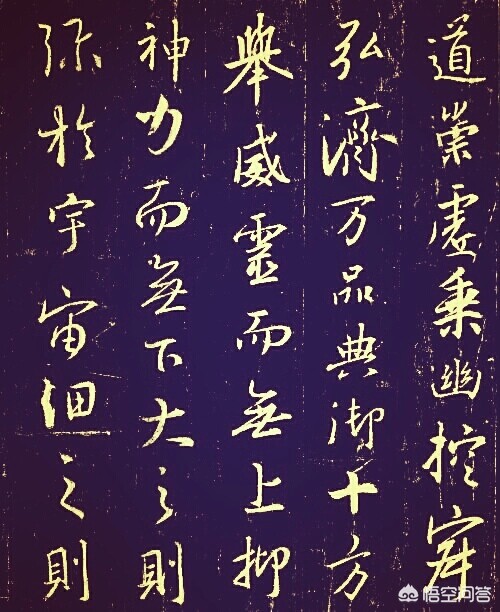 道崇虛乘幽控寂
弘濟万品典御十方
舉威靈而無上抑
神力而無下大之則
弥於宇宙細之則
悟空问答